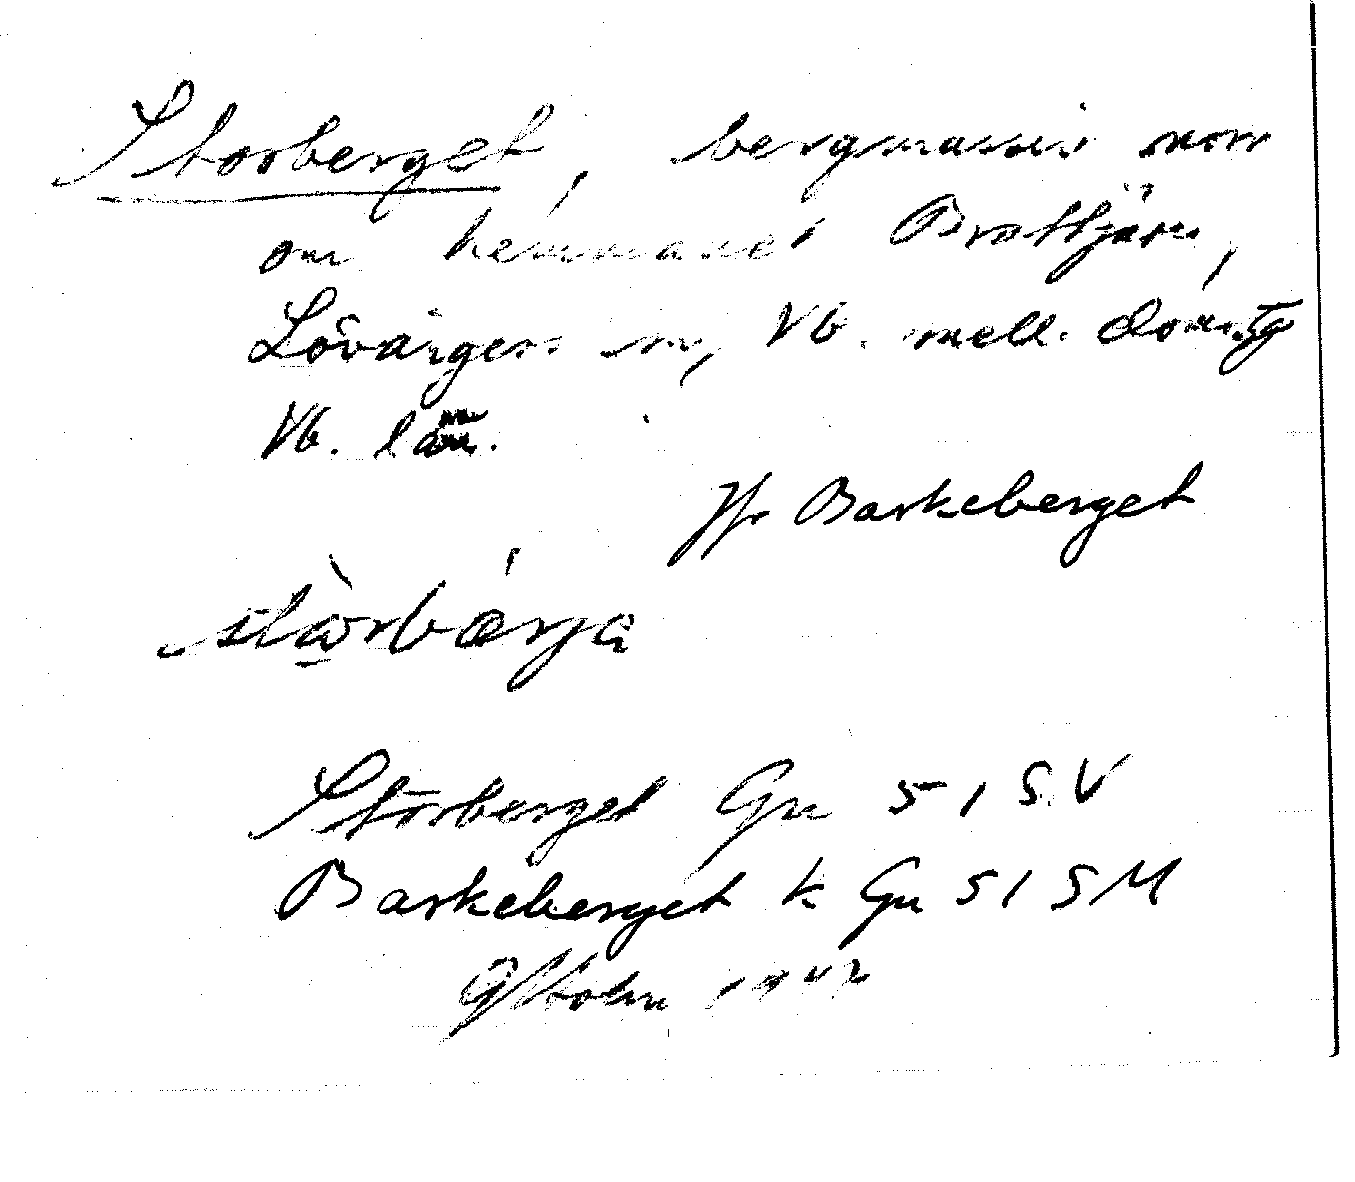 Storberget, bergmassiv norr
om hemmanet Brattjärn,
Lövångers sn, Vb. mell. domsg
Vb. län.
Jfr Barkeberget
stò̠rbǽrja
Storberget Gn 51 SV
Barkeberget k Gn 51 SM
Holm 1942